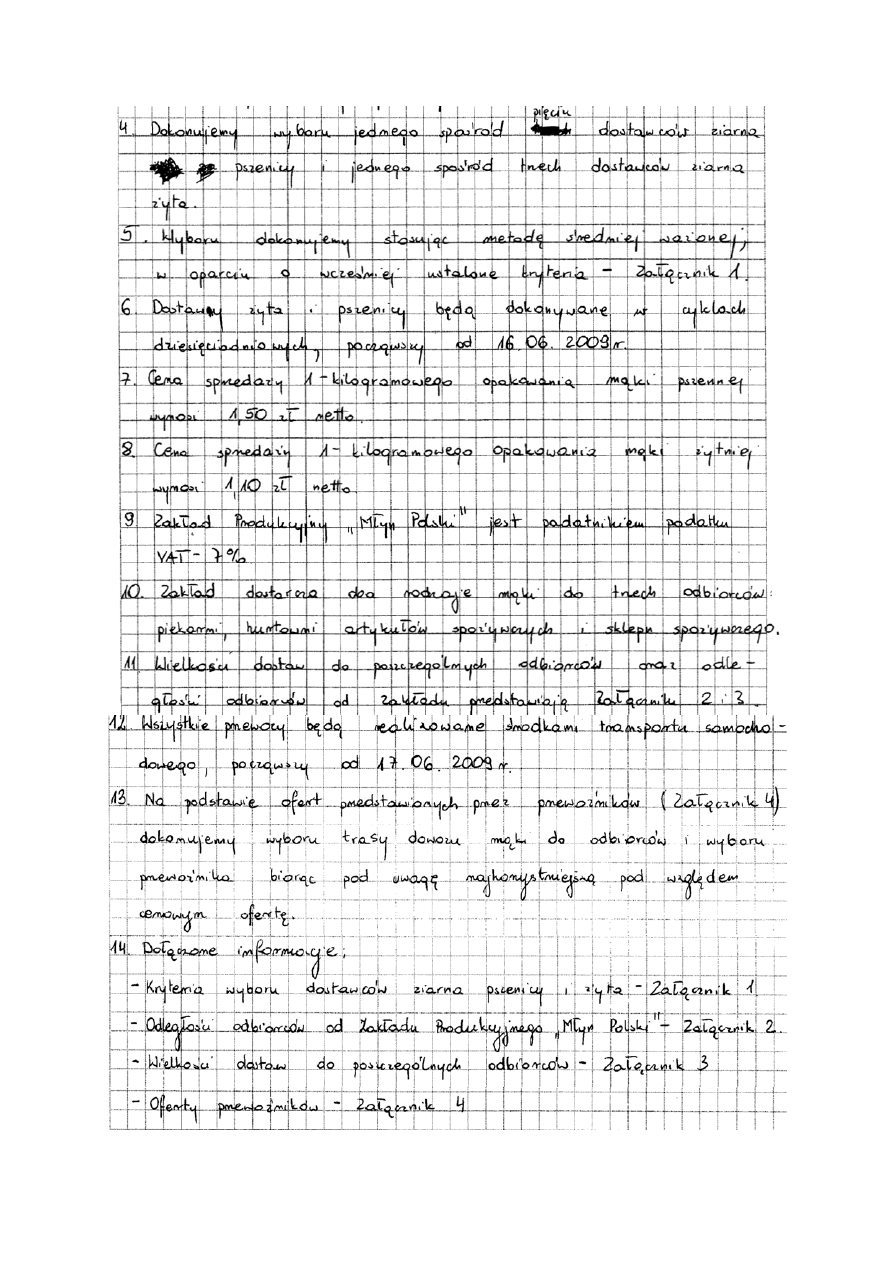 pięciu
4. Dokonujemy wyboru jednego spośród dostawców ziarna
pszenicy i jednego spośród trzech dostawców ziarna
żyta.
5. Wyboru dokonujemy stosując metodę średniej ważonej,
w oparciu o wcześniej ustalone kryteria – Załącznik 1.
6. Dostawy żyta i pszenicy będą dokonywane w cyklach
dziesięciodniowych, począwszy od 16.06.2009 r.
7. Cena sprzedaży 1-kilogramowego opakowania mąki pszennej
wynosi 1,50 zł netto.
8. Cena sprzedaży 1-kilogramowego opakowania mąki żytniej
wynosi 1,10 zł netto.
9. Zakład Produkcyjny „Młyn Polski" jest podatnikiem podatku
VAT – 7%
10. Zakład dostarcza dwa rodzaje mąki do trzech odbiorców:
piekarni, hurtowni artykułów spożywczych i sklepu spożywczego.
11. Wielkości dostaw do poszczególnych odbiorców oraz odle-
głości odbiorców od zakładu przedstawiają Załączniki 2 i 3.
12. Wszystkie przewozy będą realizowane środkami transportu samocho-
dowego, począwszy od 17.06.2009 r.
13. Na podstawie ofert przedstawionych przez przewoźników (Załącznik 4)
dokonujemy wyboru trasy dowozu mąki do odbiorców i wyboru
przewoźnika biorąc pod uwagę najkorzystniejszą pod względem
cenowym ofertę.
14. Dołączone informacje:
- Kryteria wyboru dostawców ziarna pszenicy i żyta – Załącznik 1
- Odległości odbiorców od Zakładu Produkcyjnego „Młyn Polski" – Załącznik 2.
- Wielkości dostaw do poszczególnych odbiorców – Załącznik 3
- Oferty przewoźników – Załącznik 4